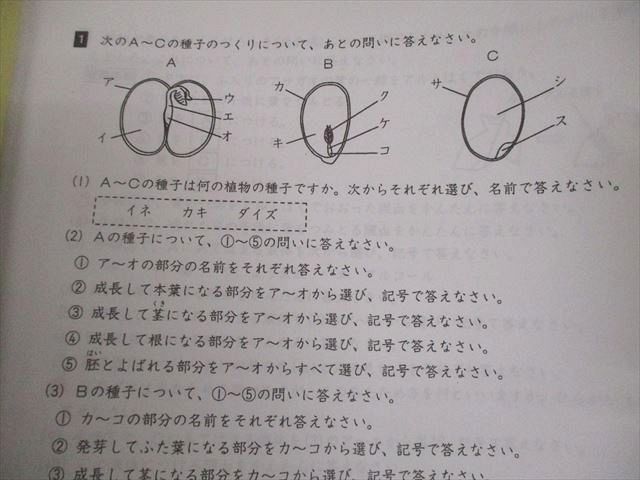 1 次のA～Cの種子のつくりについて、あとの問いに答えなさい。
A
B
C
ア
イ
ウ
エ
オ
カ
キ
ク
ケ
コ
サ
シ
ス
(1) A～Cの種子は何の植物の種子ですか。次からそれぞれ選び、名前で答えなさい。
イネ カキ ダイズ
(2) Aの種子について、①～⑤の問いに答えなさい。
① ア～オの部分の名前をそれぞれ答えなさい。
② 成長して本葉になる部分をア～オから選び、記号で答えなさい。
くき
③ 成長して茎になる部分をア～オから選び、記号で答えなさい。
④ 成長して根になる部分をア～オから選び、記号で答えなさい。
はい
⑤ 胚とよばれる部分をア～オからすべて選び、記号で答えなさい。
(3) Bの種子について、①～⑤の問いに答えなさい。
① カ～コの部分の名前をそれぞれ答えなさい。
② 発芽してふた葉になる部分をカ～コから選び、記号で答えなさい。
③ 成長して茎になる部分をカ～コから選び、記号で答えなさい。